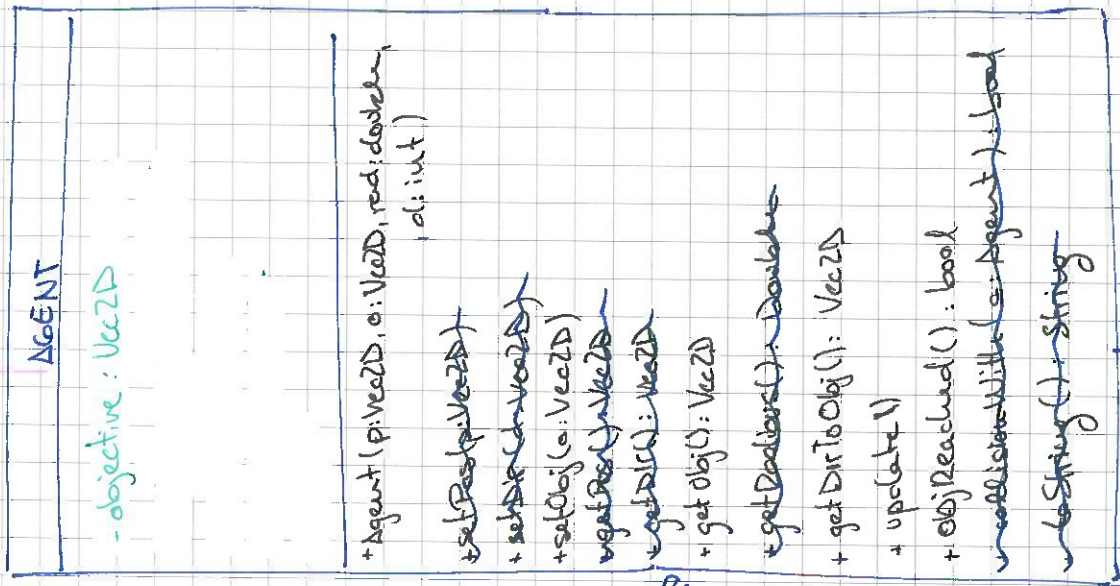 AGENT
- objective : Vec2D
+ Agent (p:Vec2D, o:Vec2D, rad:double,
, d:int)
+ setPos(p:Vec2D)
+ setDir(d:Vec2D)
+ setObj(o:Vec2D)
+ getPos():Vec2D
+ getDir():Vec2D
+ getObj():Vec2D
+ getRadious():Double
+ getDirToObj():Vec2D
+ update()
+ objReached():bool
+ collisionWith(a:Agent):bool
+ toString():String